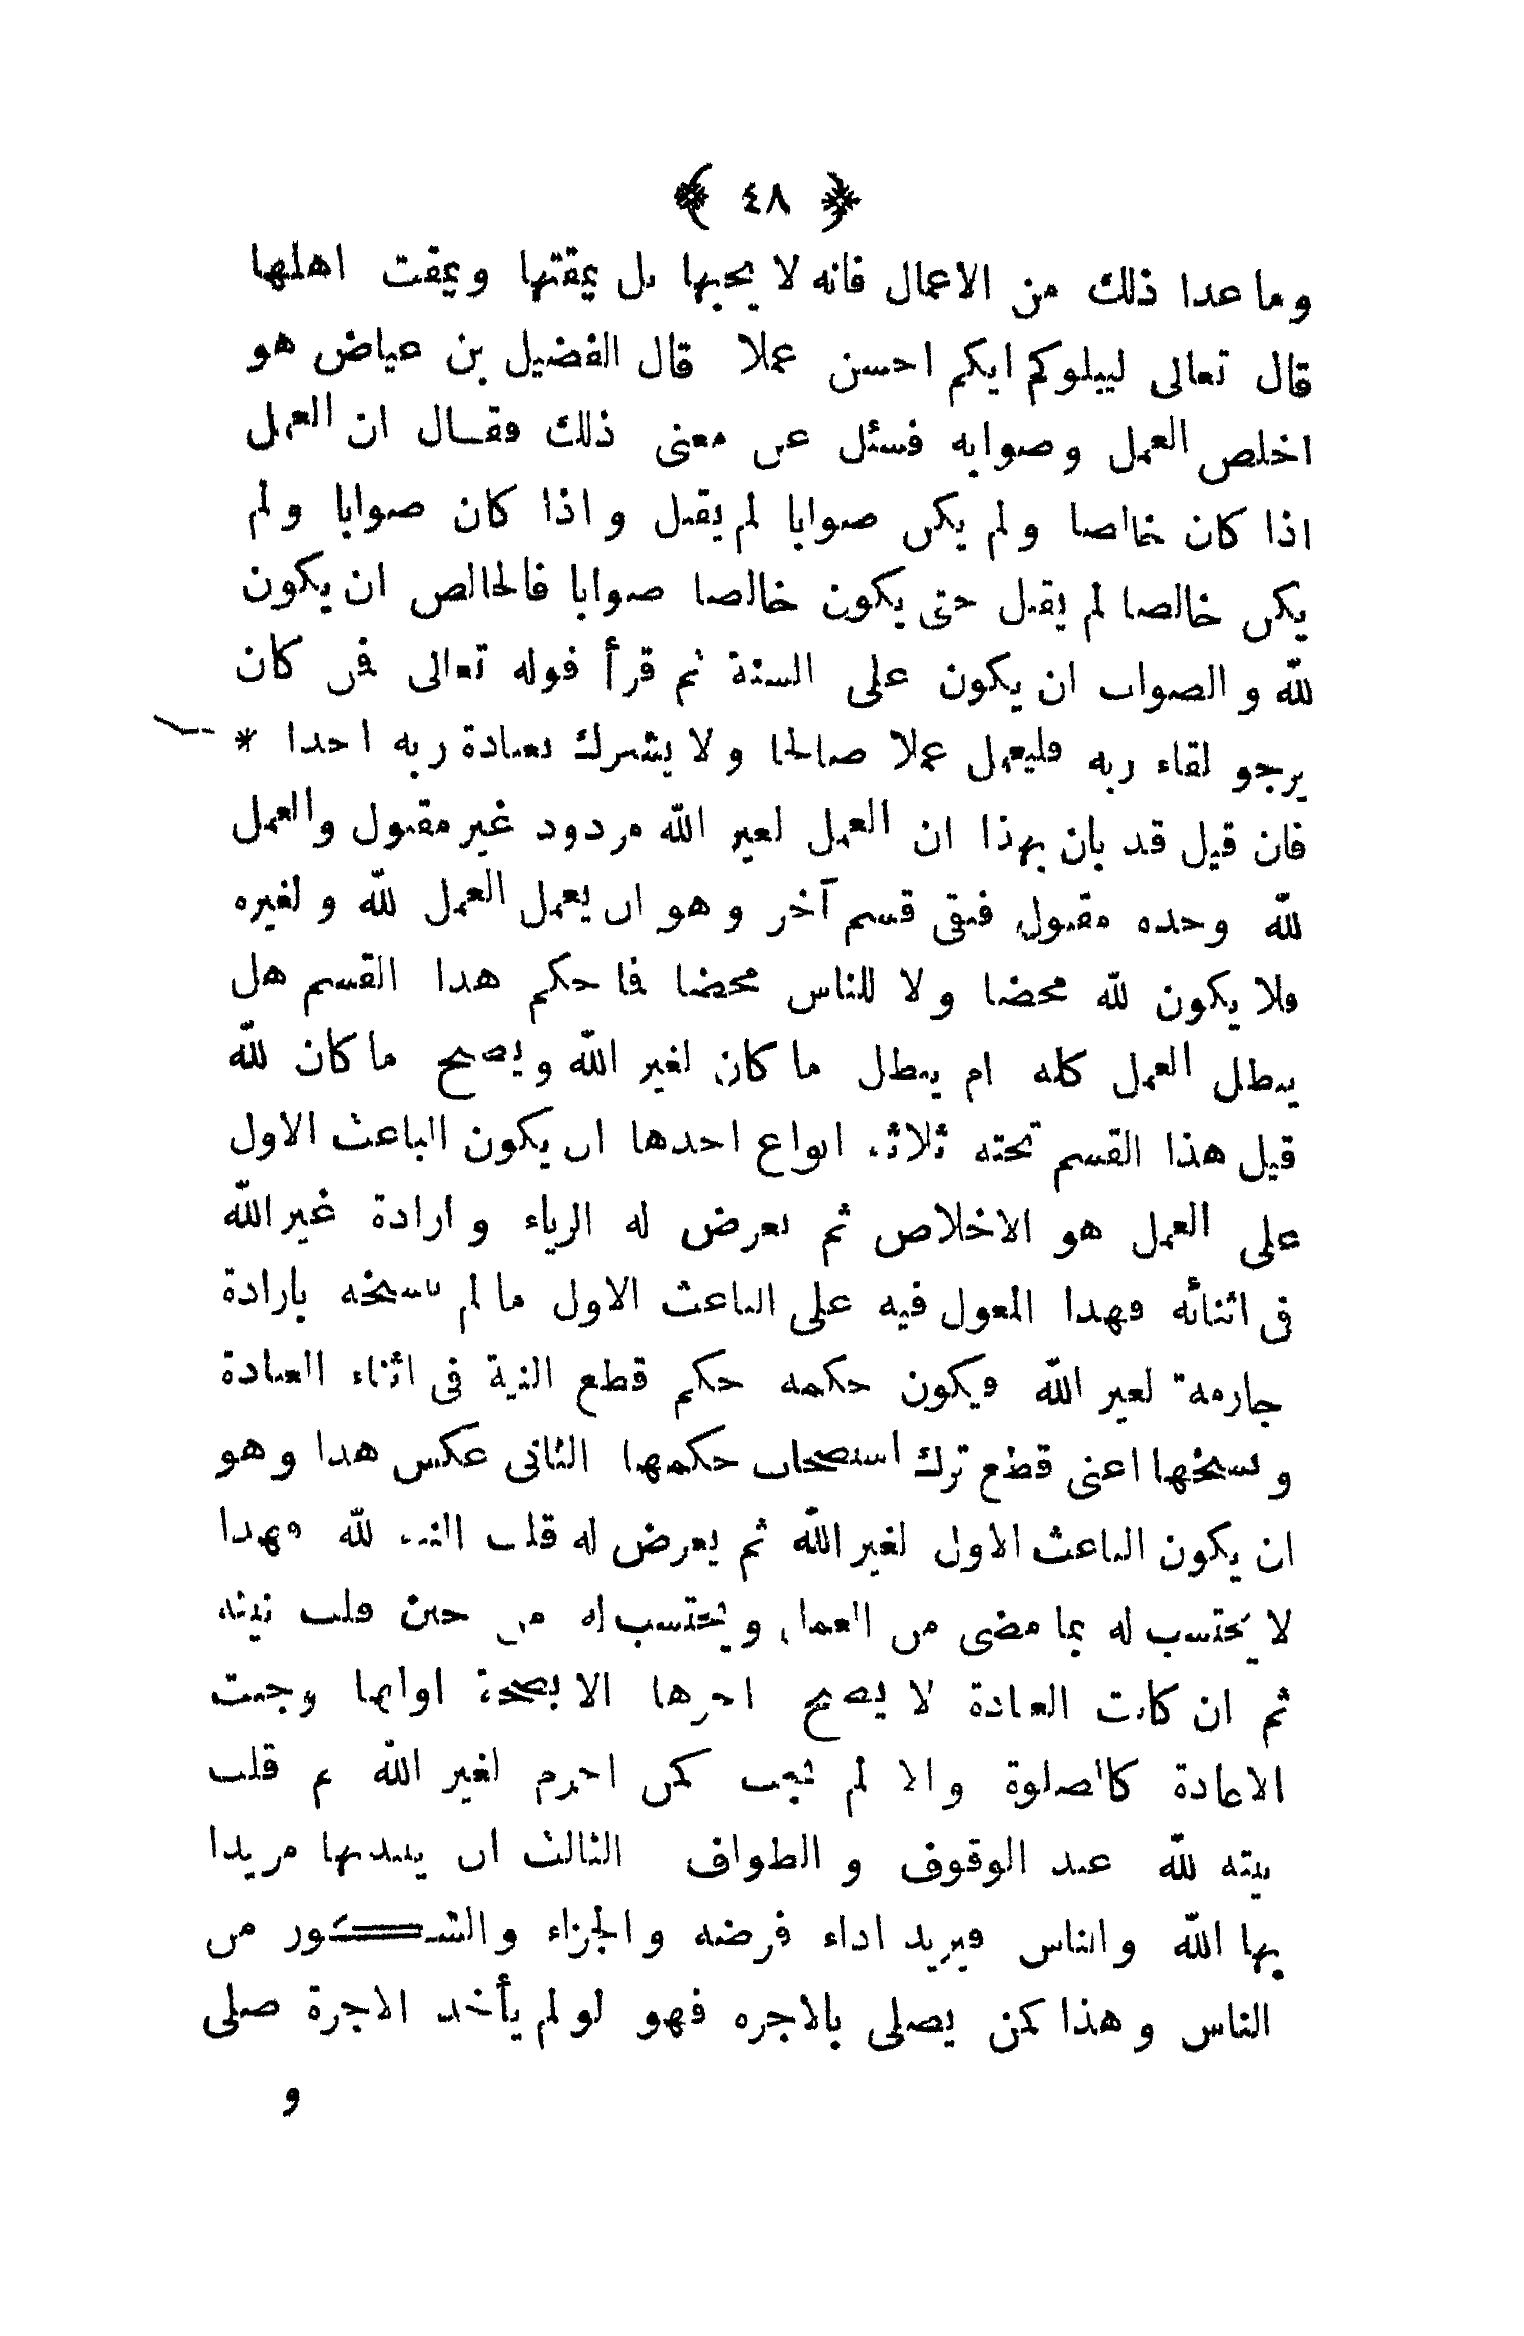 ﴿ ٤٨ ﴾
وما عدا ذلك من الاعمال فانه لا يحبها بل يمقتها ويمقت اهلها
قال تعالى ليبلوكم ايكم احسن عملا قال الفضيل بن عياض هو
اخلص العمل وصوابه فسئل عن معنى ذلك فقال ان العمل
اذا كان خالصا ولم يكن صوابا لم يقبل واذا كان صوابا ولم
يكن خالصا لم يقبل حتى يكون خالصا صوابا فالخالص ان يكون
لله والصواب ان يكون على السنة ثم قرأ قوله تعالى فمن كان
يرجو لقاء ربه فليعمل عملا صالحا ولا يشرك بعبادة ربه احدا *
فان قيل قد بان بهذا ان العمل لغير الله مردود غير مقبول والعمل
لله وحده مقبول فبقى قسم آخر وهو ان يعمل العمل لله ولغيره
فلا يكون لله محضا ولا للناس محضا فما حكم هذا القسم هل
يبطل العمل كله ام يبطل ما كان لغير الله ويصح ما كان لله
قيل هذا القسم تحته ثلاثة انواع احدها ان يكون الباعث الاول
على العمل هو الاخلاص ثم يعرض له الرياء وارادة غير الله
فى اثنائه فهذا المعول فيه على الباعث الاول ما لم يفسخه بارادة
جازمة لغير الله فيكون حكمه حكم قطع النية فى اثناء العبادة
وفسخها اعنى قطع ترك استصحاب حكمها الثانى عكس هذا وهو
ان يكون الباعث الاول لغير الله ثم يعرض له قلب النية لله فهذا
لا يحتسب له بما مضى من العمل ويحتسب له من حين قلب نيته
ثم ان كانت العبادة لا يصح اخرها الا بصحة اولها وجبت
الاعادة كالصلوة والا لم تجب كمن احرم لغير الله ثم قلب
نيته لله عند الوقوف والطواف الثالث ان يبتديها مريدا
بها الله والناس فيريد اداء فرضه والجزاء والشكور من
الناس وهذا كمن يصلى بالاجره فهو لو لم يأخذ الاجرة صلى
و